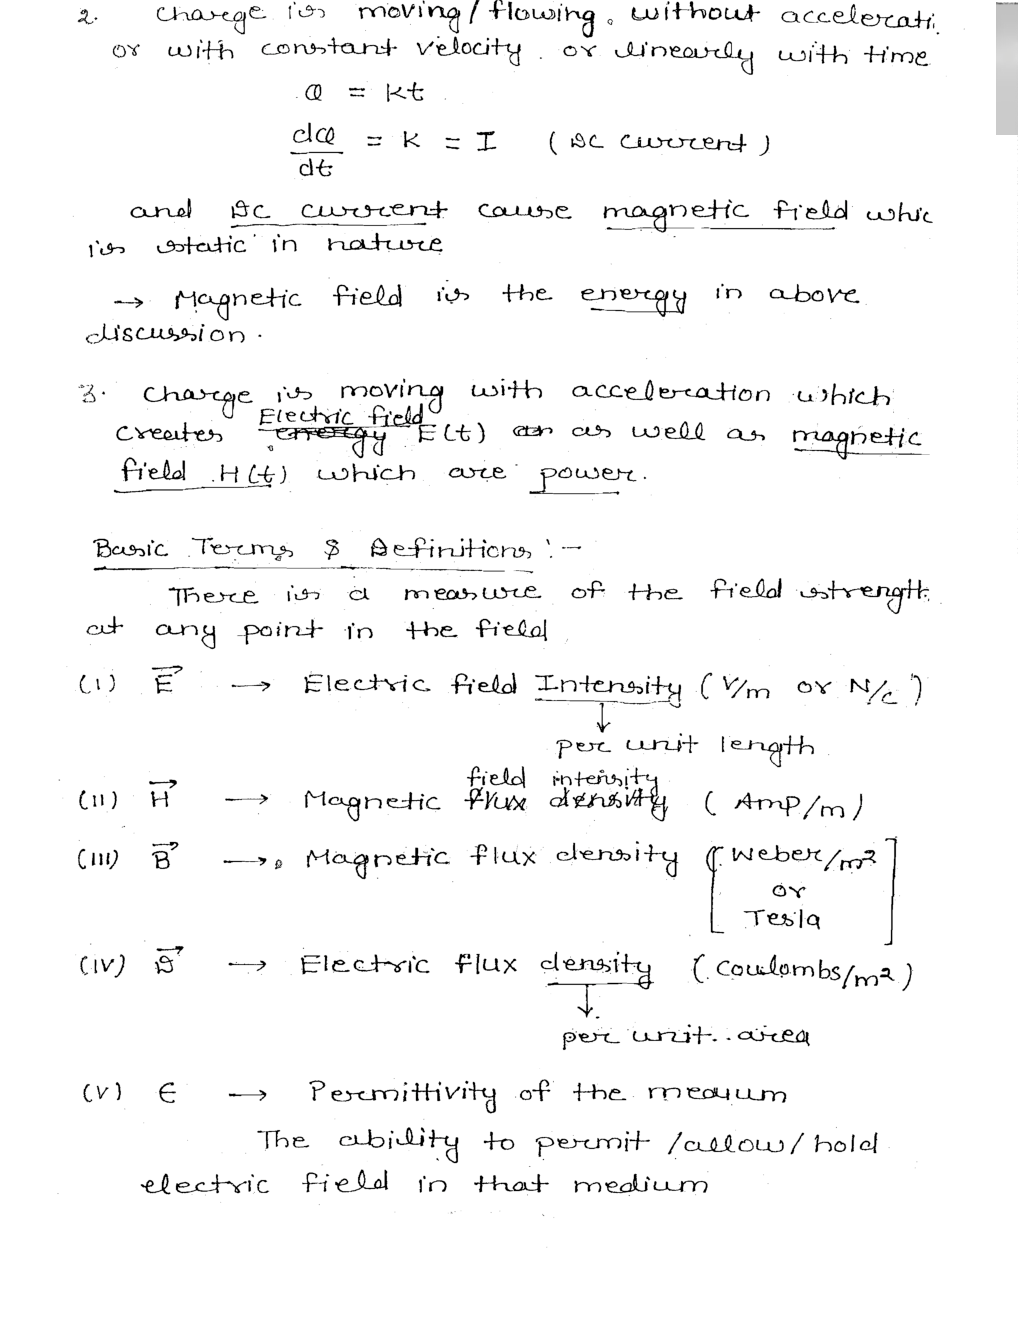 2. Charge is moving / flowing. without accelerati
or with constant velocity. or linearly with time
Q = kt
dQ/dt = K = I (DC current)
and DC current cause magnetic field whic
is static in nature
→ Magnetic field is the energy in above
discussion.
3. Charge is moving with acceleration which
Electric field
creates energy E(t) an as well as magnetic
field H(t) which are power.
Basic Terms & Definitions :-
There is a measure of the field strength
at any point in the field
(I) E⃗ → Electric field Intensity (V/m or N/c)
↓
per unit length
field intensity
(II) H⃗ → Magnetic flux density (Amp/m)
(III) B⃗ → Magnetic flux density [Weber/m²
or
Tesla]
(IV) D⃗ → Electric flux density (Coulombs/m²)
↓
per unit area
(V) ∈ → Permittivity of the medium
The ability to permit /allow/hold
electric field in that medium